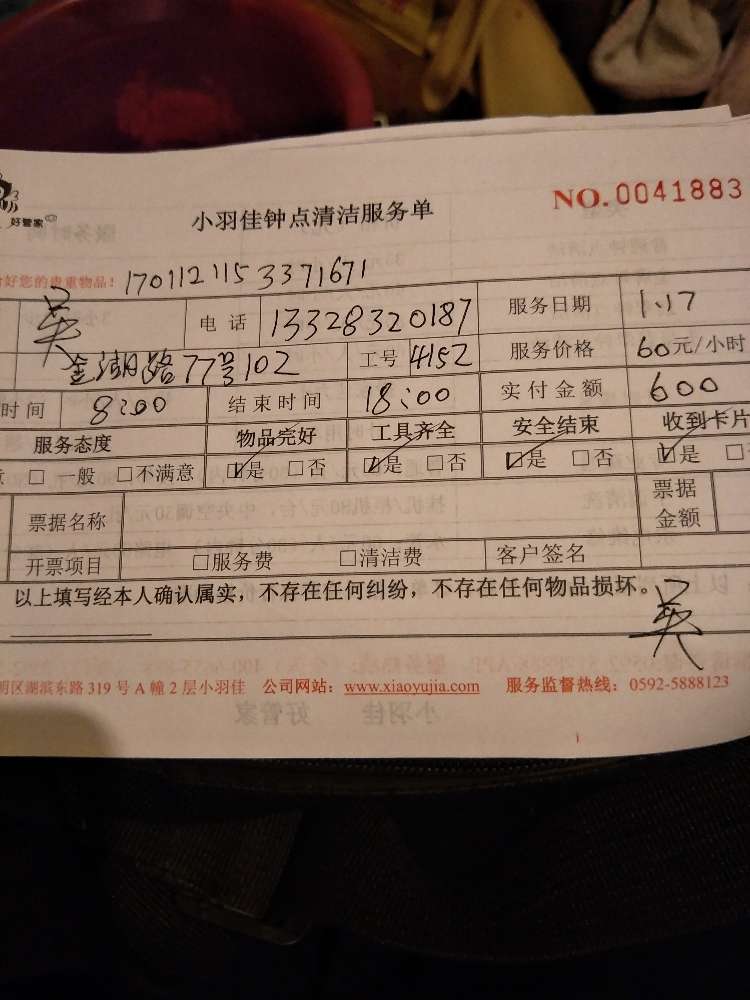 好管家
小羽佳钟点清洁服务单
NO.0041883
好您的贵重物品! 1701121153371671
吴 电话 13328320187 服务日期 1.17
金湖路77号102 工号 4152 服务价格 60元/小时
时间 8:00 结束时间 18:00 实付金额 600
服务态度 物品完好 工具齐全 安全结束 收到卡片
□一般 □不满意 ☑是 □否 ☑是 □否 ☑是 □否 ☑是
票据名称 票据金额
开票项目 □服务费 □清洁费 客户签名
以上填写经本人确认属实，不存在任何纠纷，不存在任何物品损坏。
吴
明区湖滨东路319号A幢2层小羽佳 公司网站：www.xiaoyujia.com 服务监督热线：0592-5888123